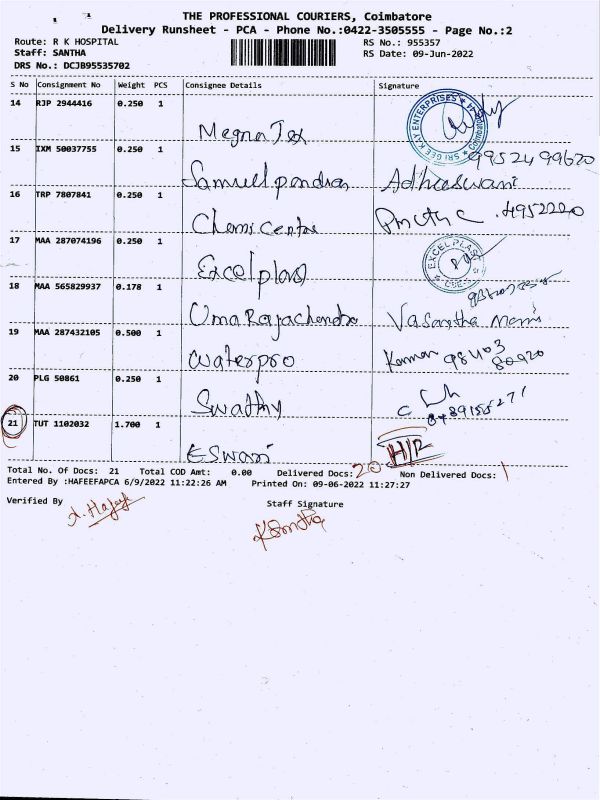 THE PROFESSIONAL COURIERS, Coimbatore
Delivery Runsheet - PCA - Phone No.:0422-3505555 - Page No.:2
Route: R K HOSPITAL RS No.: 955357
Staff: SANTHA RS Date: 09-Jun-2022
DRS No.: DCJB95535702
S No Consignment No Weight PCS Consignee Details Signature
14 RJP 2944416 0.250 1
SRI GEE KAY ENTERPRISES
Megna Tex
15 IXM 50037755 0.250 1 9952499620
Samuel pandian Adhieswani
16 TRP 7807841 0.250 1
Chemi Centre
17 MAA 287074196 0.250 1
EXCEL PLAST CBE
Excel plast
18 MAA 565829937 0.178 1
Uma Rajachandra Vasantha mani
19 MAA 287432105 0.500 1
Waterpro Kannan 98403 80920
20 PLG 50861 0.250 1
Swathy
21 TUT 1102032 1.700 1
ESwari H/R
Total No. Of Docs: 21 Total COD Amt: 0.00 Delivered Docs: 20 Non Delivered Docs: 1
Entered By :HAFEEFAPCA 6/9/2022 11:22:26 AM Printed On: 09-06-2022 11:27:27
Verified By Staff Signature